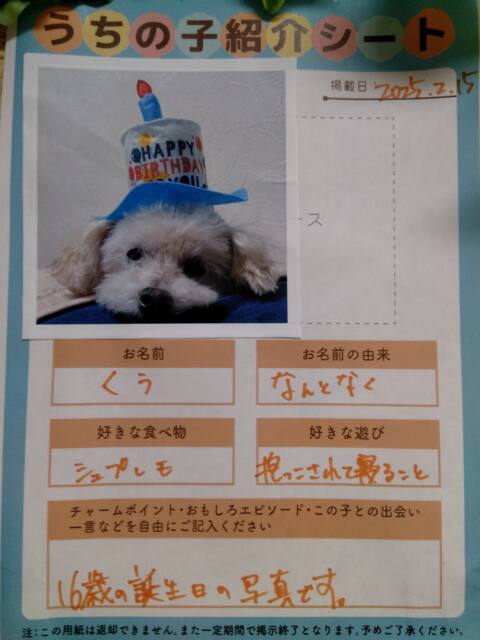 うちの子紹介シート
掲載日 2025.2.15
HAPPY
BIRTHDAY
YOU
ース
お名前
くう
お名前の由来
なんとなく
好きな食べ物
シュプレモ
好きな遊び
抱っこされて寝ること
チャームポイント・おもしろエピソード・この子との出会い
一言などを自由にご記入ください
16歳の誕生日の写真です。
注:この用紙は返却できません。また一定期間で掲示終了となります。予めご了承ください。